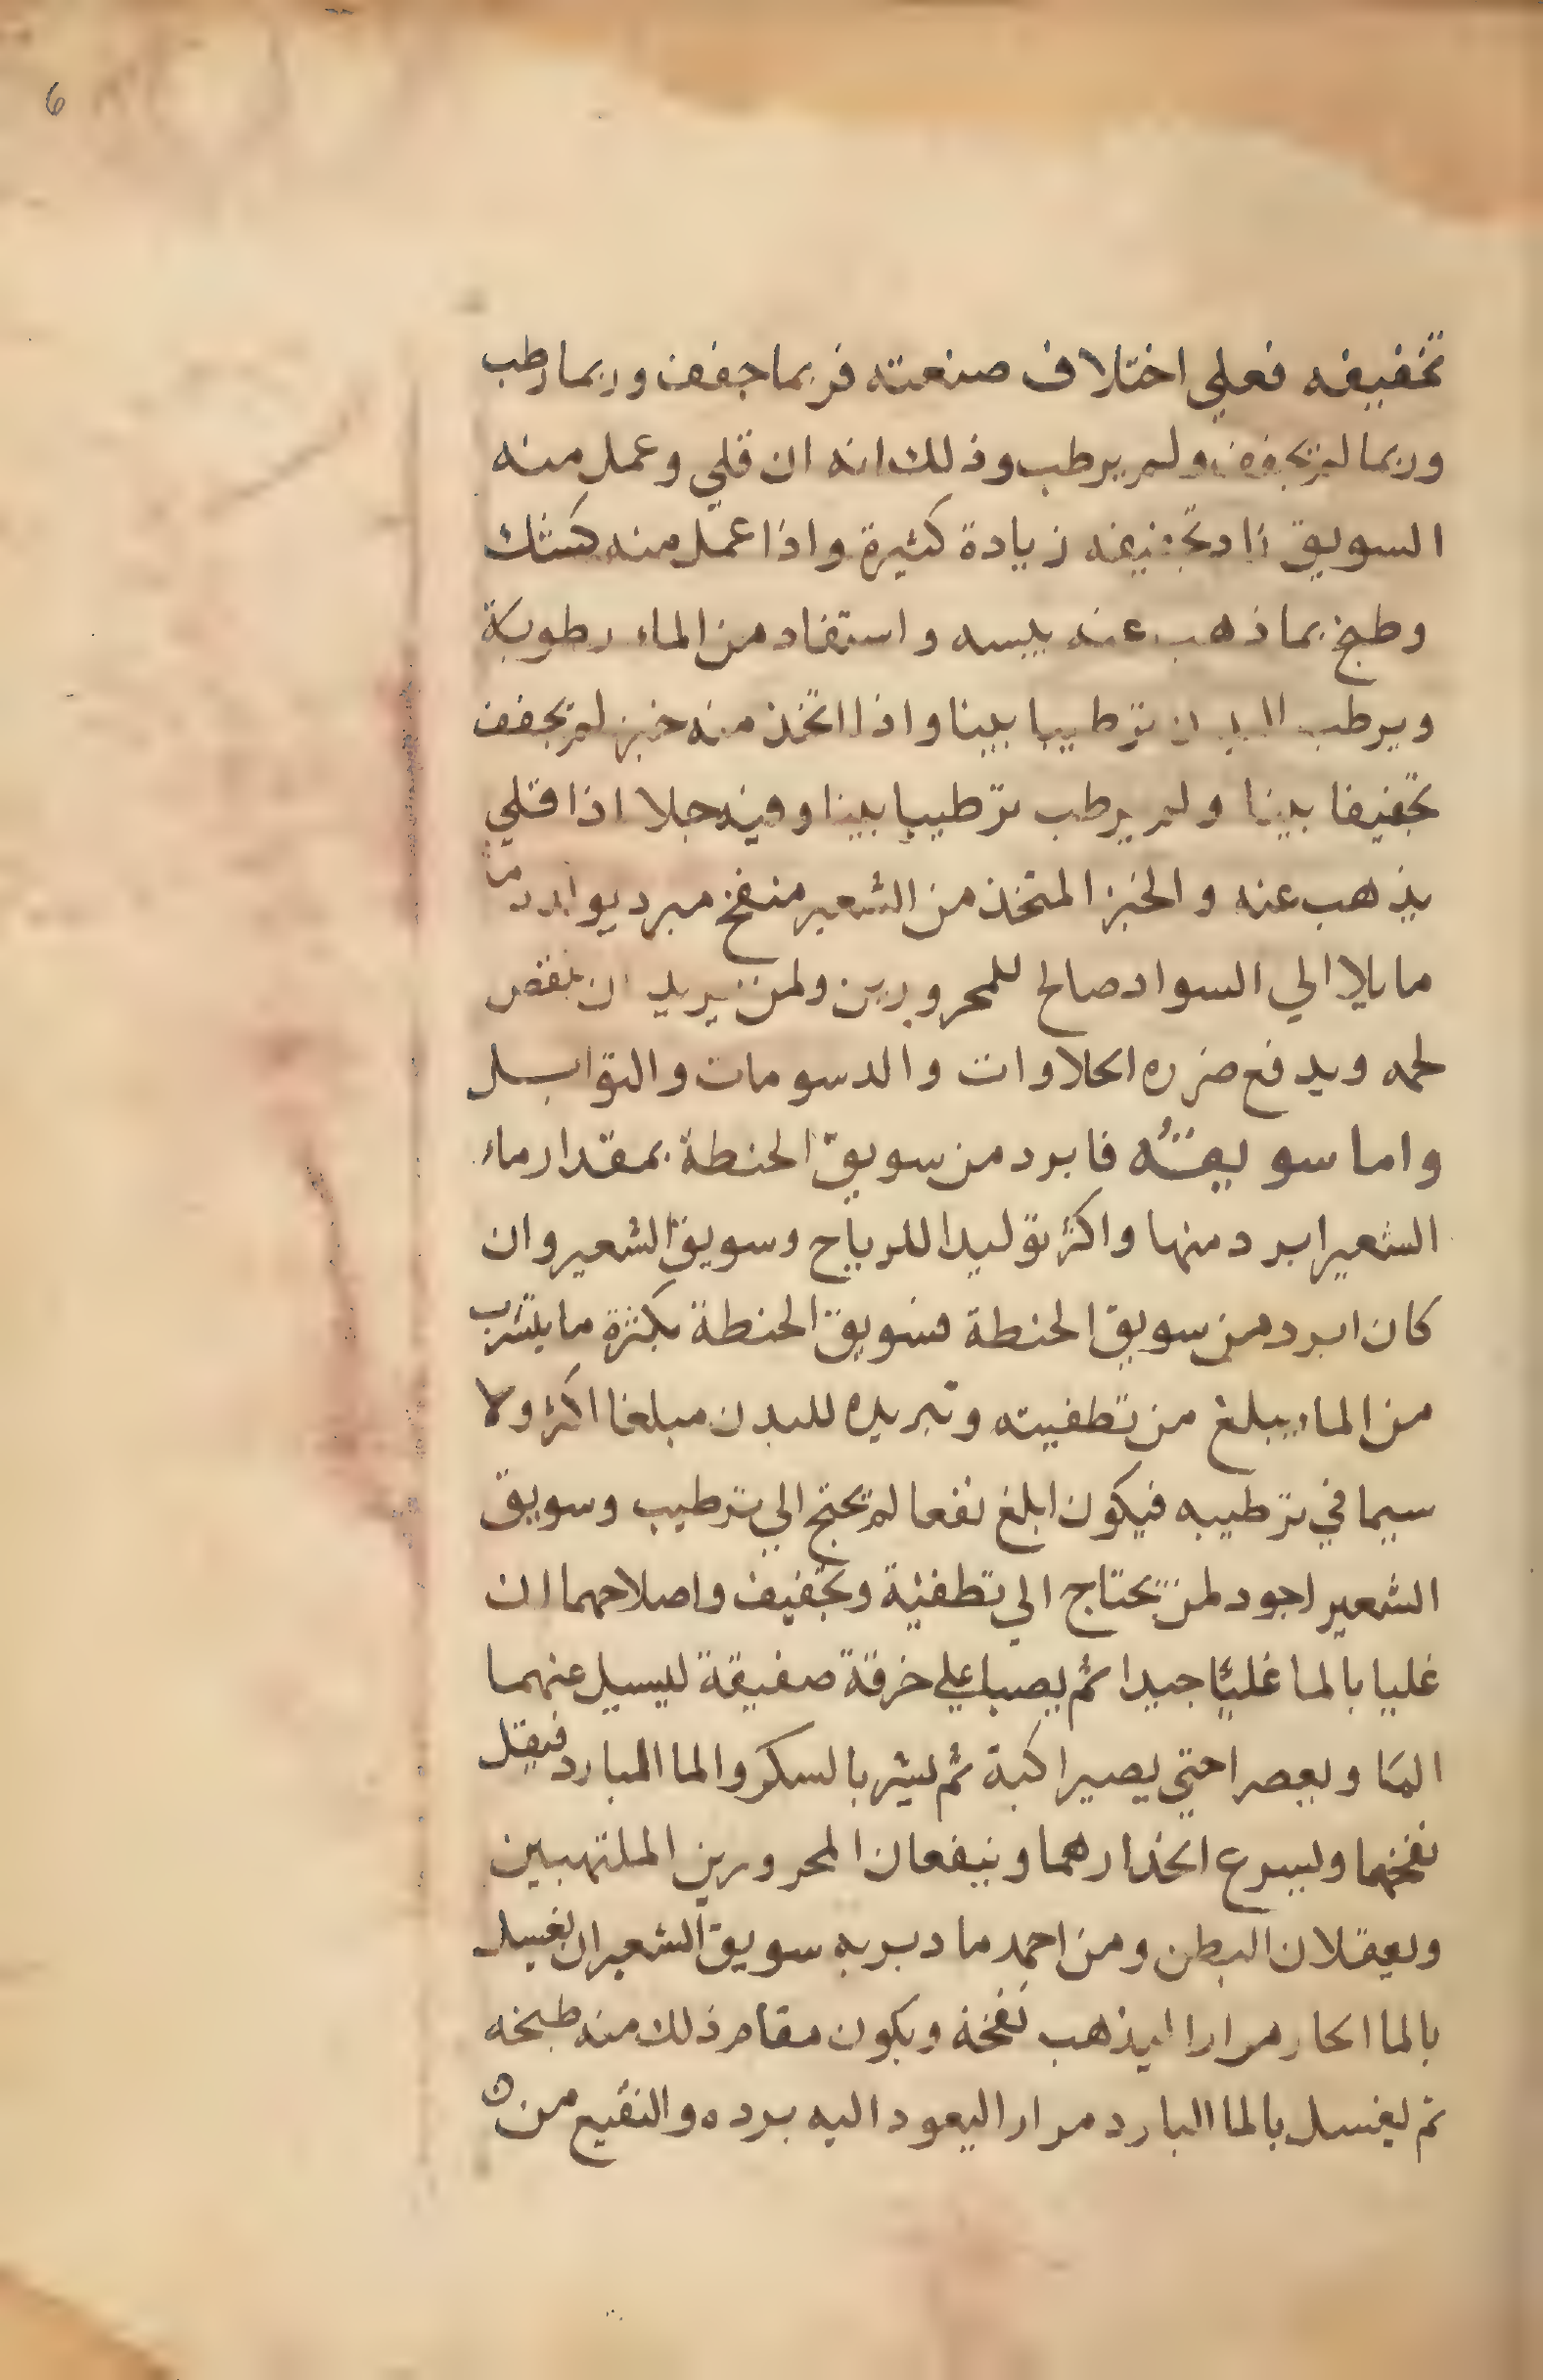 6
تجفيفه فعلي اختلاف صنعته فربما جفف وربما رطب
وربما لم يجفف ولم يرطب وذلك انه ان قلي وعمل منه
السويق زاد تجفيفه زيادة كثيرة واذا عمل منه كشك
وطبخ بما ذهب عنه يبسه واستفاد من الماء رطوبة
ويرطب البدن ترطيبا بينا واذا اتخذ منه خبز لم يجفف
تجفيفا بينا ولم يرطب ترطيبا بينا وفيه جلا اذا قلي
يذهب عنه والخبز المتخذ من الشعير منفخ مبرد يولد دما
مايلا الي السواد صالح للمحرورين ولمن يريد ان ينقص
لحمه ويدفع ضرره الحلاوات والدسومات والتوابل
واما سويقُه فابرد من سويق الحنطة بمقدار ماء
الشعير ابرد منها واكثر توليدا للرياح وسويق الشعير وان
كان ابرد من سويق الحنطة فسويق الحنطة بكثرة ما يتشرب
من الماء يبلغ من تطفيته وتبريده للبدن مبلغا اكثر ولا
سيما في ترطيبه فيكون ابلغ نفعا لم يحتج الي ترطيب وسويق
الشعير اجود لمن يحتاج الي تطفئة وتجفيف واصلاحهما ان
غليا بالما غليًا جيدا ثم يصب علي خرقة صفيقة ليسيل عنهما
الما ويعصرا حتي يصيرا كبة ثم يشر بالسكر والما البارد فيقل
نفخهما ويسرع انحذارهما وينفعان المحرورين الملتهبين
ويعقلان البطن ومن احمد ما دبر به سويق الشعير ان يغسل
بالما الحار مرارا ليذهب نفخة ويكون مقام ذلك منه طبخه
ثم يغسل بالما البارد مرارا ليعود اليه برده والنقيع من